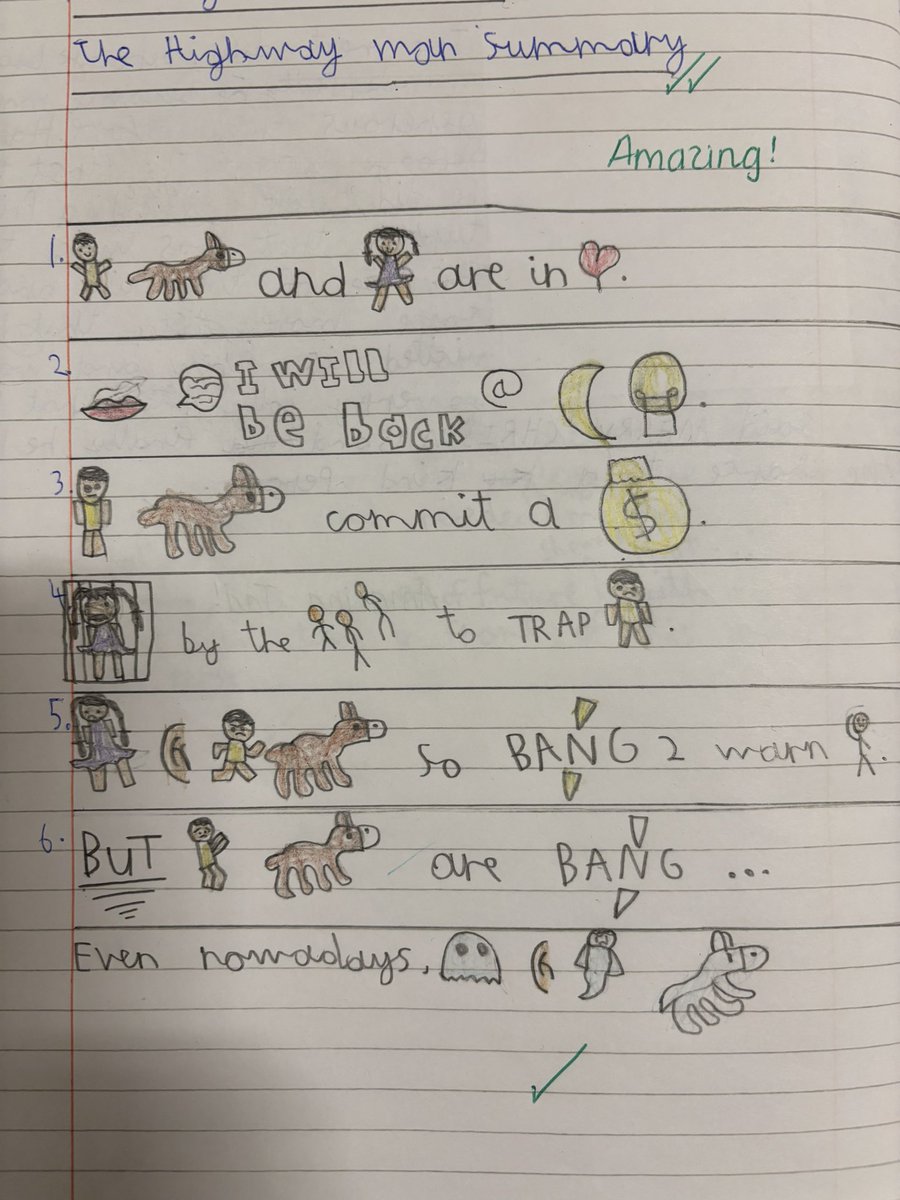 The Highway man Summary
Amazing!
1. and are in .
2. I WILL
be back @ .
3. commit a $ .
4. by the to TRAP .
5. so BANG 2 warn .
6. BUT are BANG ...
Even nowadays,